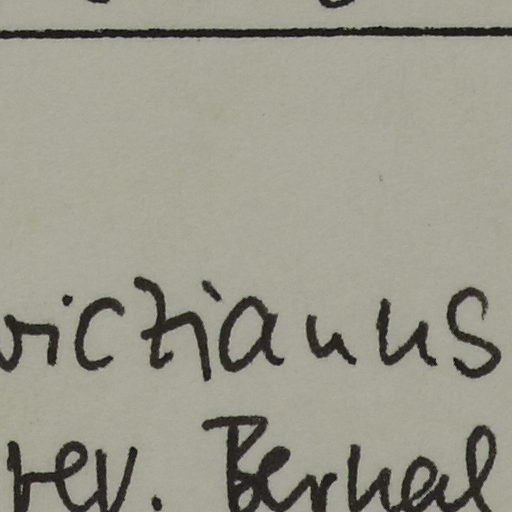 victianus
rev. Bernal